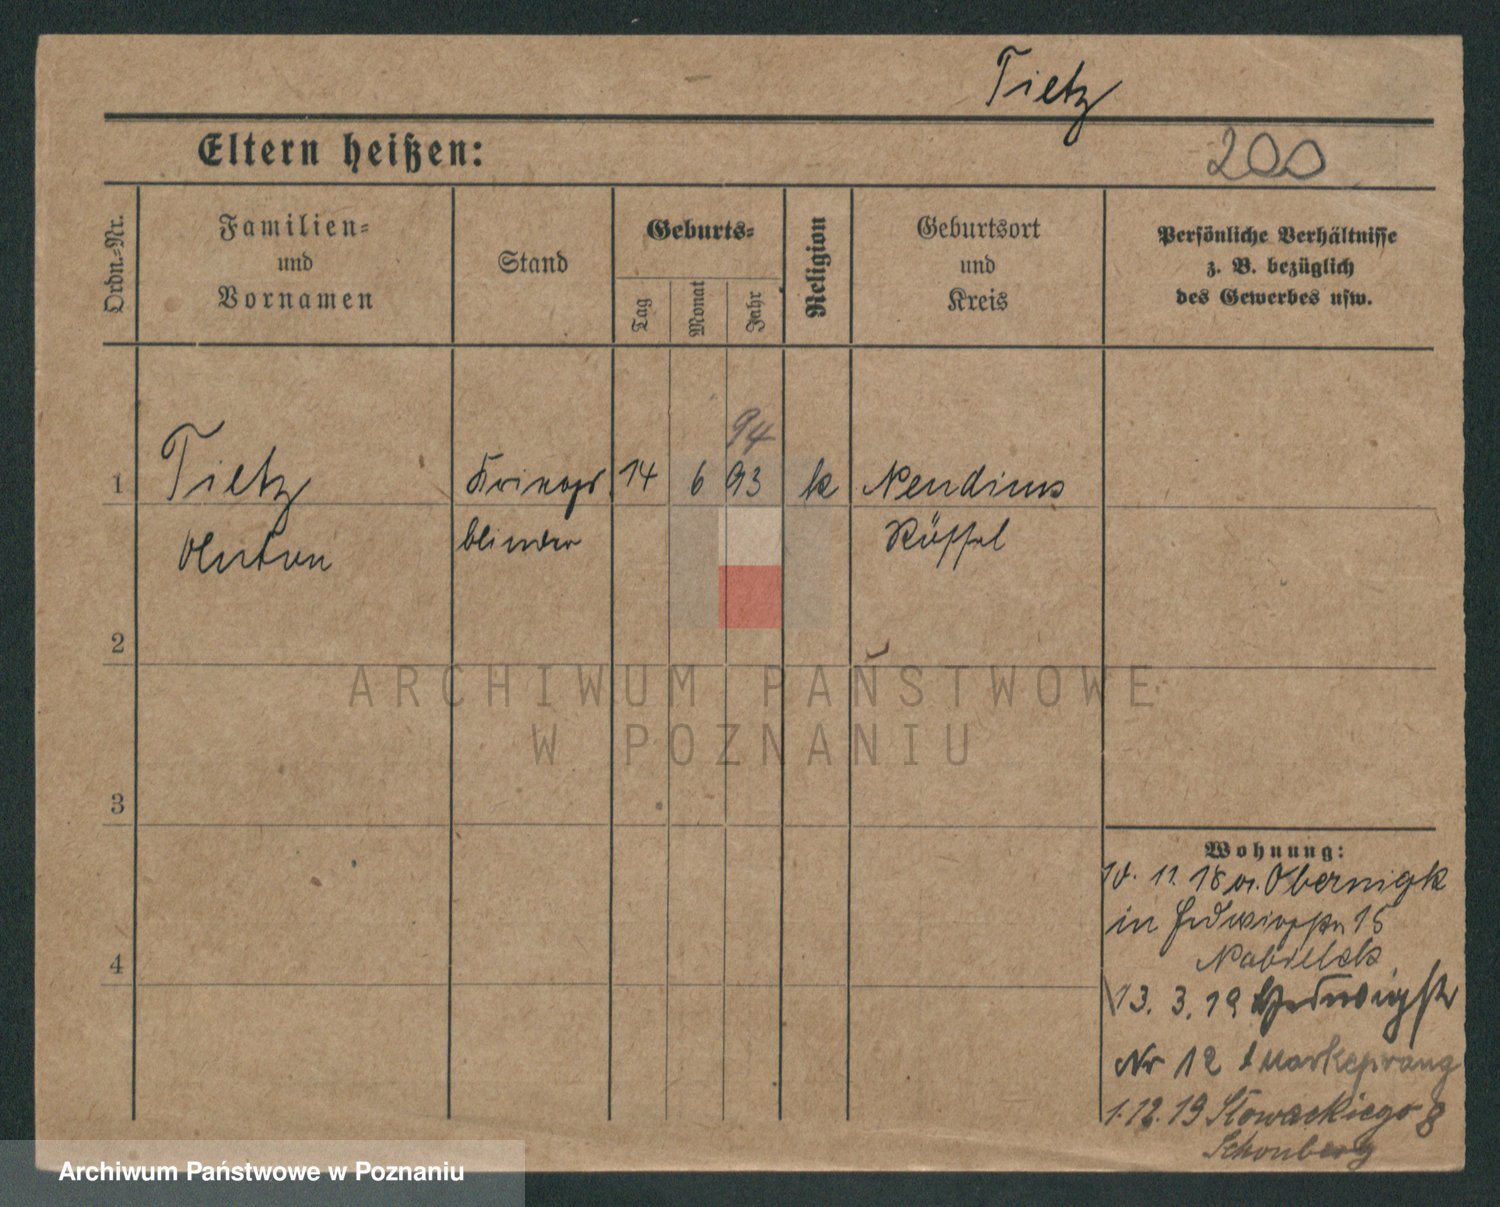 Tietz
Eltern heißen:
200
Ordn.-Nr.
Familien-
und
Vornamen
Stand
Geburts-
Tag
Monat
Jahr
Religion
Geburtsort
und
Kreis
Persönliche Verhältnisse
z. B. bezüglich
des Gewerbes usw.
94
1
Tietz
14
6
93
k
Anton
blinder
Rößel
2
3
4
ARCHIWUM PAŃSTWOWE
W POZNANIU
Wohnung:
10. 11. 18 v. Obernigk
in Hedwigstr 15
13. 3. 19 Hedwigstr
Nr 12 Markeprang
1. 12. 19 Słowackiego 8
Schonberg
Archiwum Państwowe w Poznaniu